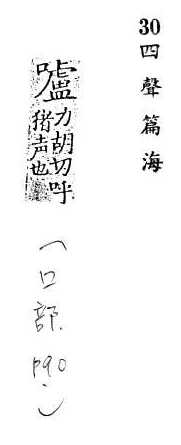 30四聲篇海
嚧力胡切呼
猪声也
(口部.p90.)